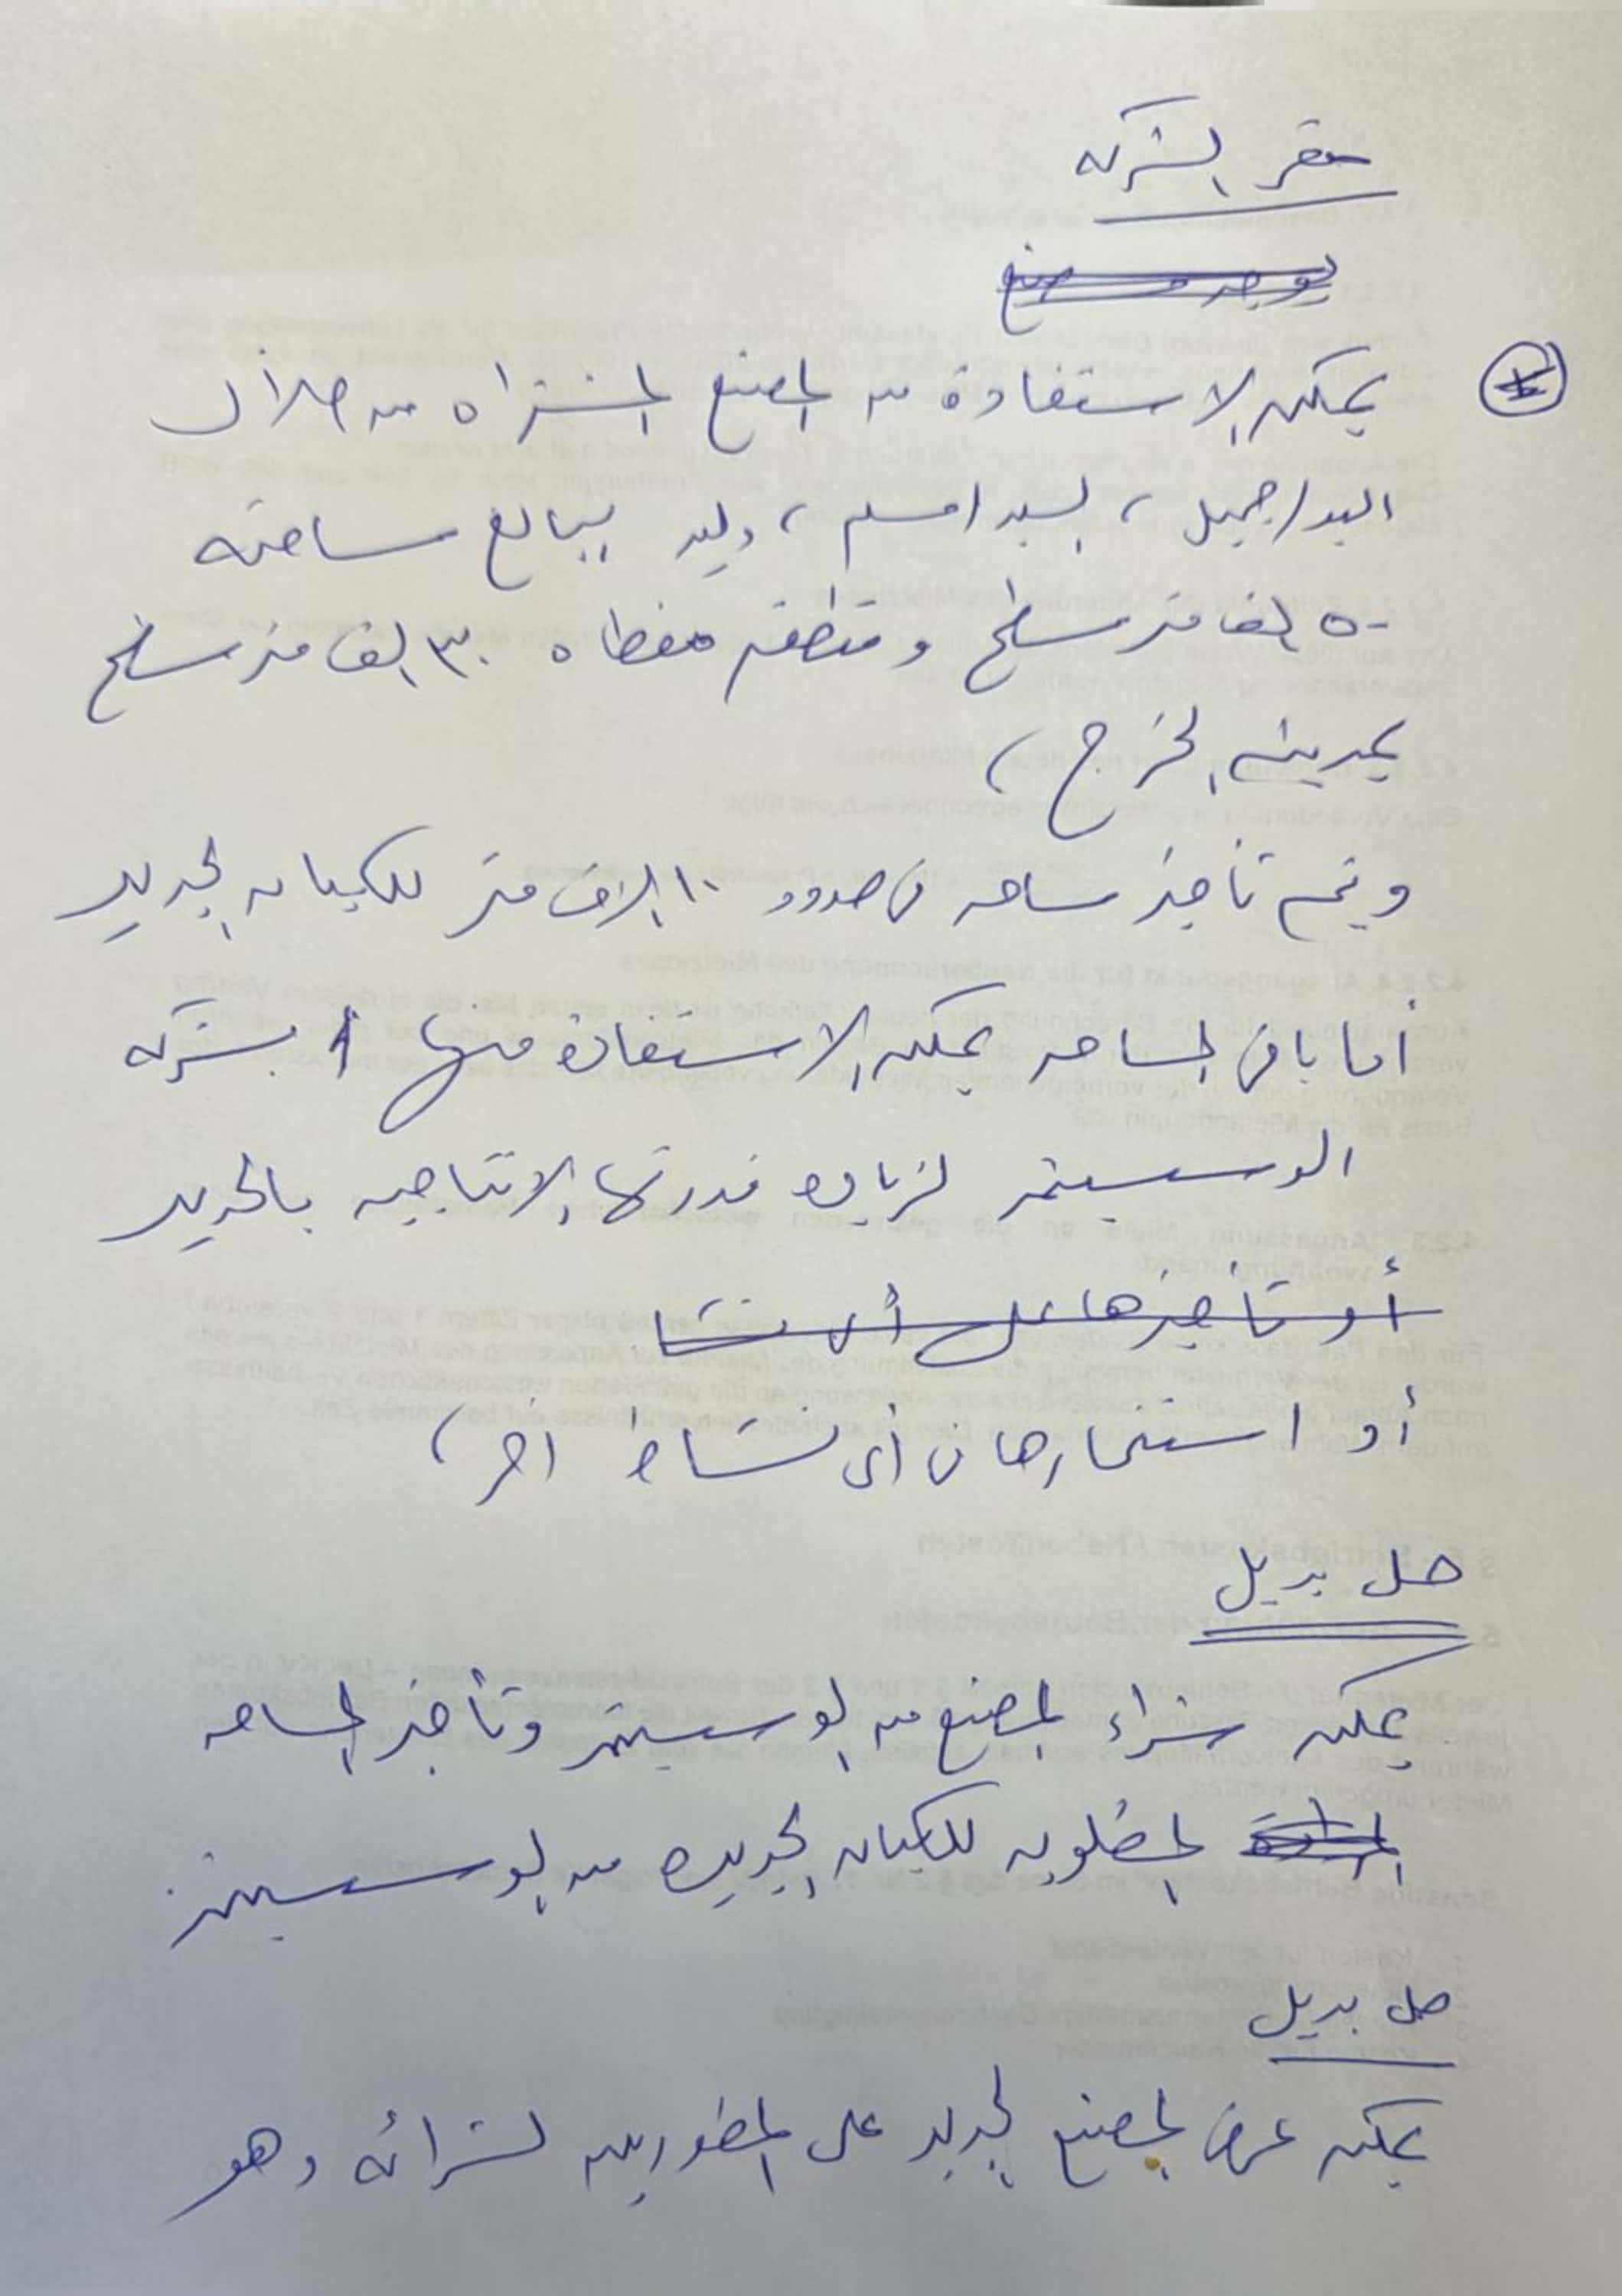 مقر الشركه
يوجد مصنع
يمكن الاستفادة من المصنع المشتراه من خلال
السيد/جميل ، السيد/مسلم ، وليد يبالغ مساحته
٥٠ الف متر مسطح ومنطقه مغطاه ٣٠ الف متر مسطح
بمدينه الخرج ،
ويتم تأجير مساحه فى حدود ١٠ الاف متر للكيان الجديد
أما باقى المساحه يمكن الاستفادة منها شركه
الوسسيتمز لزياده قدرتها الانتاجيه بالحديد
أو تأجيرها على أى نشا
أو استثمارها فى أى نشاط اخر ،
حل بديل
يمكن شراء المصنع من الوسسيتمز وتأجير المساحه
المطلوبه للكيان الجديده من الوسسيتمز
حل بديل
يمكن عرض المصنع الجديد على المطورين لشرائه وهو